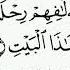 إِۦلَٰفِهِمْ رِحْلَةَ
هَٰذَا ٱلْبَيْتِ